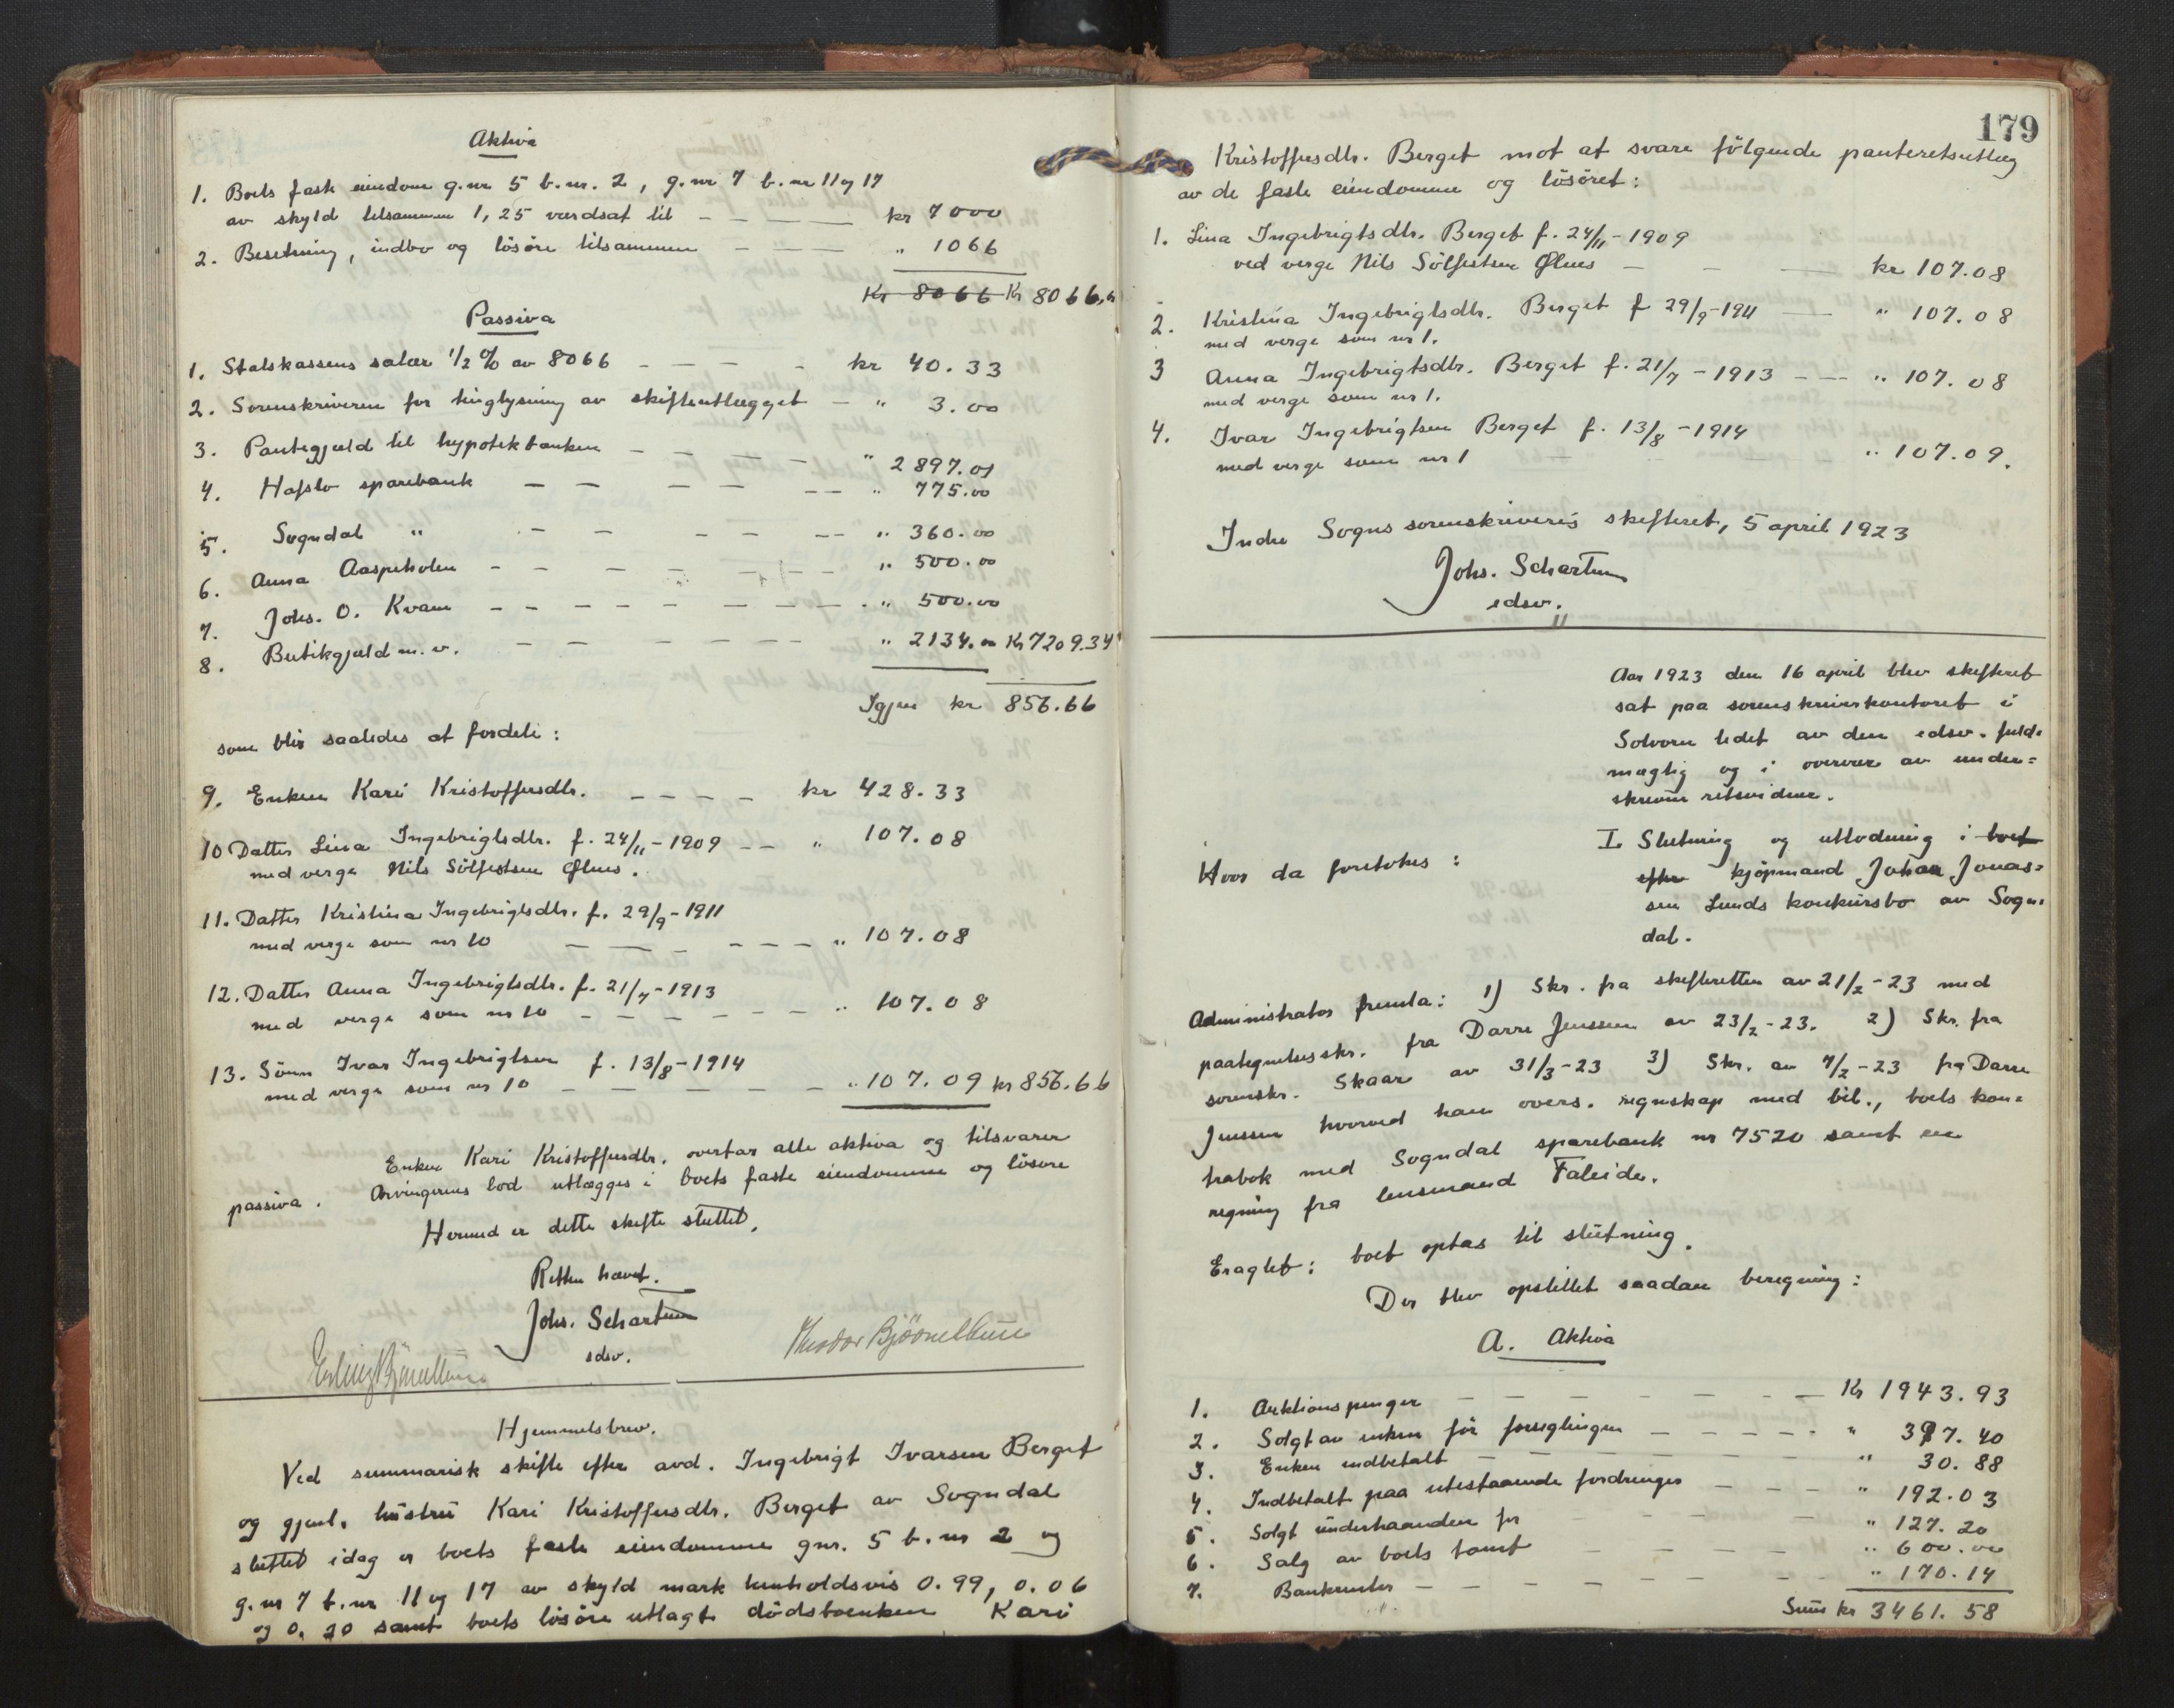 Aktiva
1. Boets faste eiendom g.nr 5 b.nr. 2, g.nr 7 b.nr 11 og 17
av skyld tilsammen 1,25 værdsat til – – – kr 7000
2. Besetning, indbo og lösöre tilsammen – – – " 1066
Kr 8066 Kr 8066,
Passiva
1. Statskassens salær 1/2 % av 8066 – – – – kr 40.33
2. Sorenskriveren for tinglysning av skifteutlægget – " 3.00
3. Pantegjæld til hypotekbanken – – – – " 2897.01
4. Hafslo sparebank – – – – – " 775.00
5. Sogndal " – – – – – " 360.00
6. Anna Aaspeholen – – – – – – " 500.00
7. Johs. O. Kvam – – – – – – – – " 500.00
8. Butikgjæld m.v. – – – – – – " 2134.00 Kr 7209.34
Igjen kr 856.66
som blir saaledes at fordele:
9. Enken Kari Kristoffersdtr. – – – – kr 428.33
10 Datter Lina Ingebrigtsdtr. f. 24/11-1909 – – " 107.08
med verge Nils Sölfestsen Ølnes.
11. Datter Kristina Ingebrigtsdtr. f. 29/9-1911
med verge som nr 10 – – – – – " 107.08
12. Datter Anna Ingebrigtsdtr. f. 21/7-1913
med verge som nr 10 – – – – – – " 107.08
13. Sönn Ivar Ingebrigtsen f. 13/8-1914
med verge som nr 10 – – – – – – " 107.09 kr 856.66
Enken Kari Kristoffersdtr. overtar alle aktiva og tilsvarer
passiva. Arvingernes lod utlægges i boets faste eiendomme og lösöre
Hermed er dette skifte sluttet.
Retten hævet.
Johs. Schartum
edsv.
Erling Bjørnethun
Theodor Bjöonethun
Hjemmelsbrev.
Ved summarisk skifte efter avd. Ingebrigt Ivarsen Berget
og gjenl. hustru Kari Kristoffersdtr. Berget av Sogndal
sluttet idag er boets faste eiendomme gnr. 5 b.nr 2 og
g.nr 7 b.nr 11 og 17 av skyld mark henholdsvis 0.99, 0.06
og 0.20 samt boets lösöre utlagt dödsboenken Kari
179
Kristoffersdtr. Berget mot at svare fölgende panteretsutlæg
av de faste eiendomme og lösöret:
1. Lina Ingebrigtsdtr. Berget f. 24/11-1909
ved verge Nils Sölfestsen Ølnes – – – kr 107.08
2. Kristina Ingebrigtsdtr. Berget f 29/9-1911 – " 107.08
med verge som nr 1.
3 Anna Ingebrigtsdtr. Berget f. 21/7-1913 – – " 107.08
med verge som nr 1.
4. Ivar Ingebrigtsen Berget f. 13/8-1914
med verge som nr 1 – – – " 107.09.
Indre Sogns sorenskriveris skifteret, 5 april 1923
Johs. Schartum
edsv.
Aar 1923 den 16 april blev skifteret
sat paa sorenskriverkontoret i
Solvorn ledet av den edsv. fuld-
mægtig og i overvær av under-
skrevne retsvidner.
Hvor da foretokes:
I. Slutning og utlodning i boet
efter kjöpmand Johan Jonas-
sen Lunds konkursbo av Sogn-
dal.
Administrator fremla: 1) Skr. fra skifteretten av 21/2-23 med
paategnelsesskr. fra Darre Jenssen av 23/2-23. 2) Skr. fra
sorenskr. Skaar av 31/3-23 3) Skr. av 7/2-23 fra Darre
Jenssen hvorved han overs. regnskap med bil., boets kon-
trabok med Sogndal sparebank nr 7520 samt en
regning fra lensmand Faleide.
Eragtet: boet optas til slutning.
Der blev opstillet saadan beregning:
A. Aktiva
1. Auktionspenger – – – – – – – Kr 1943.93
2. Solgt av enken för forseglingen – – – – – " 397.40
3. Enken indbetalt – – – – – " 30.88
4. Indbetalt paa utestaaende fordringer – – – " 192.03
5. Solgt underhaanden for – – – – " 127.20
6. Salg av boets tomt – – – – " 600.00
7. Bankrenter – – – – – – – – " 170.14
Sum kr 3461.58